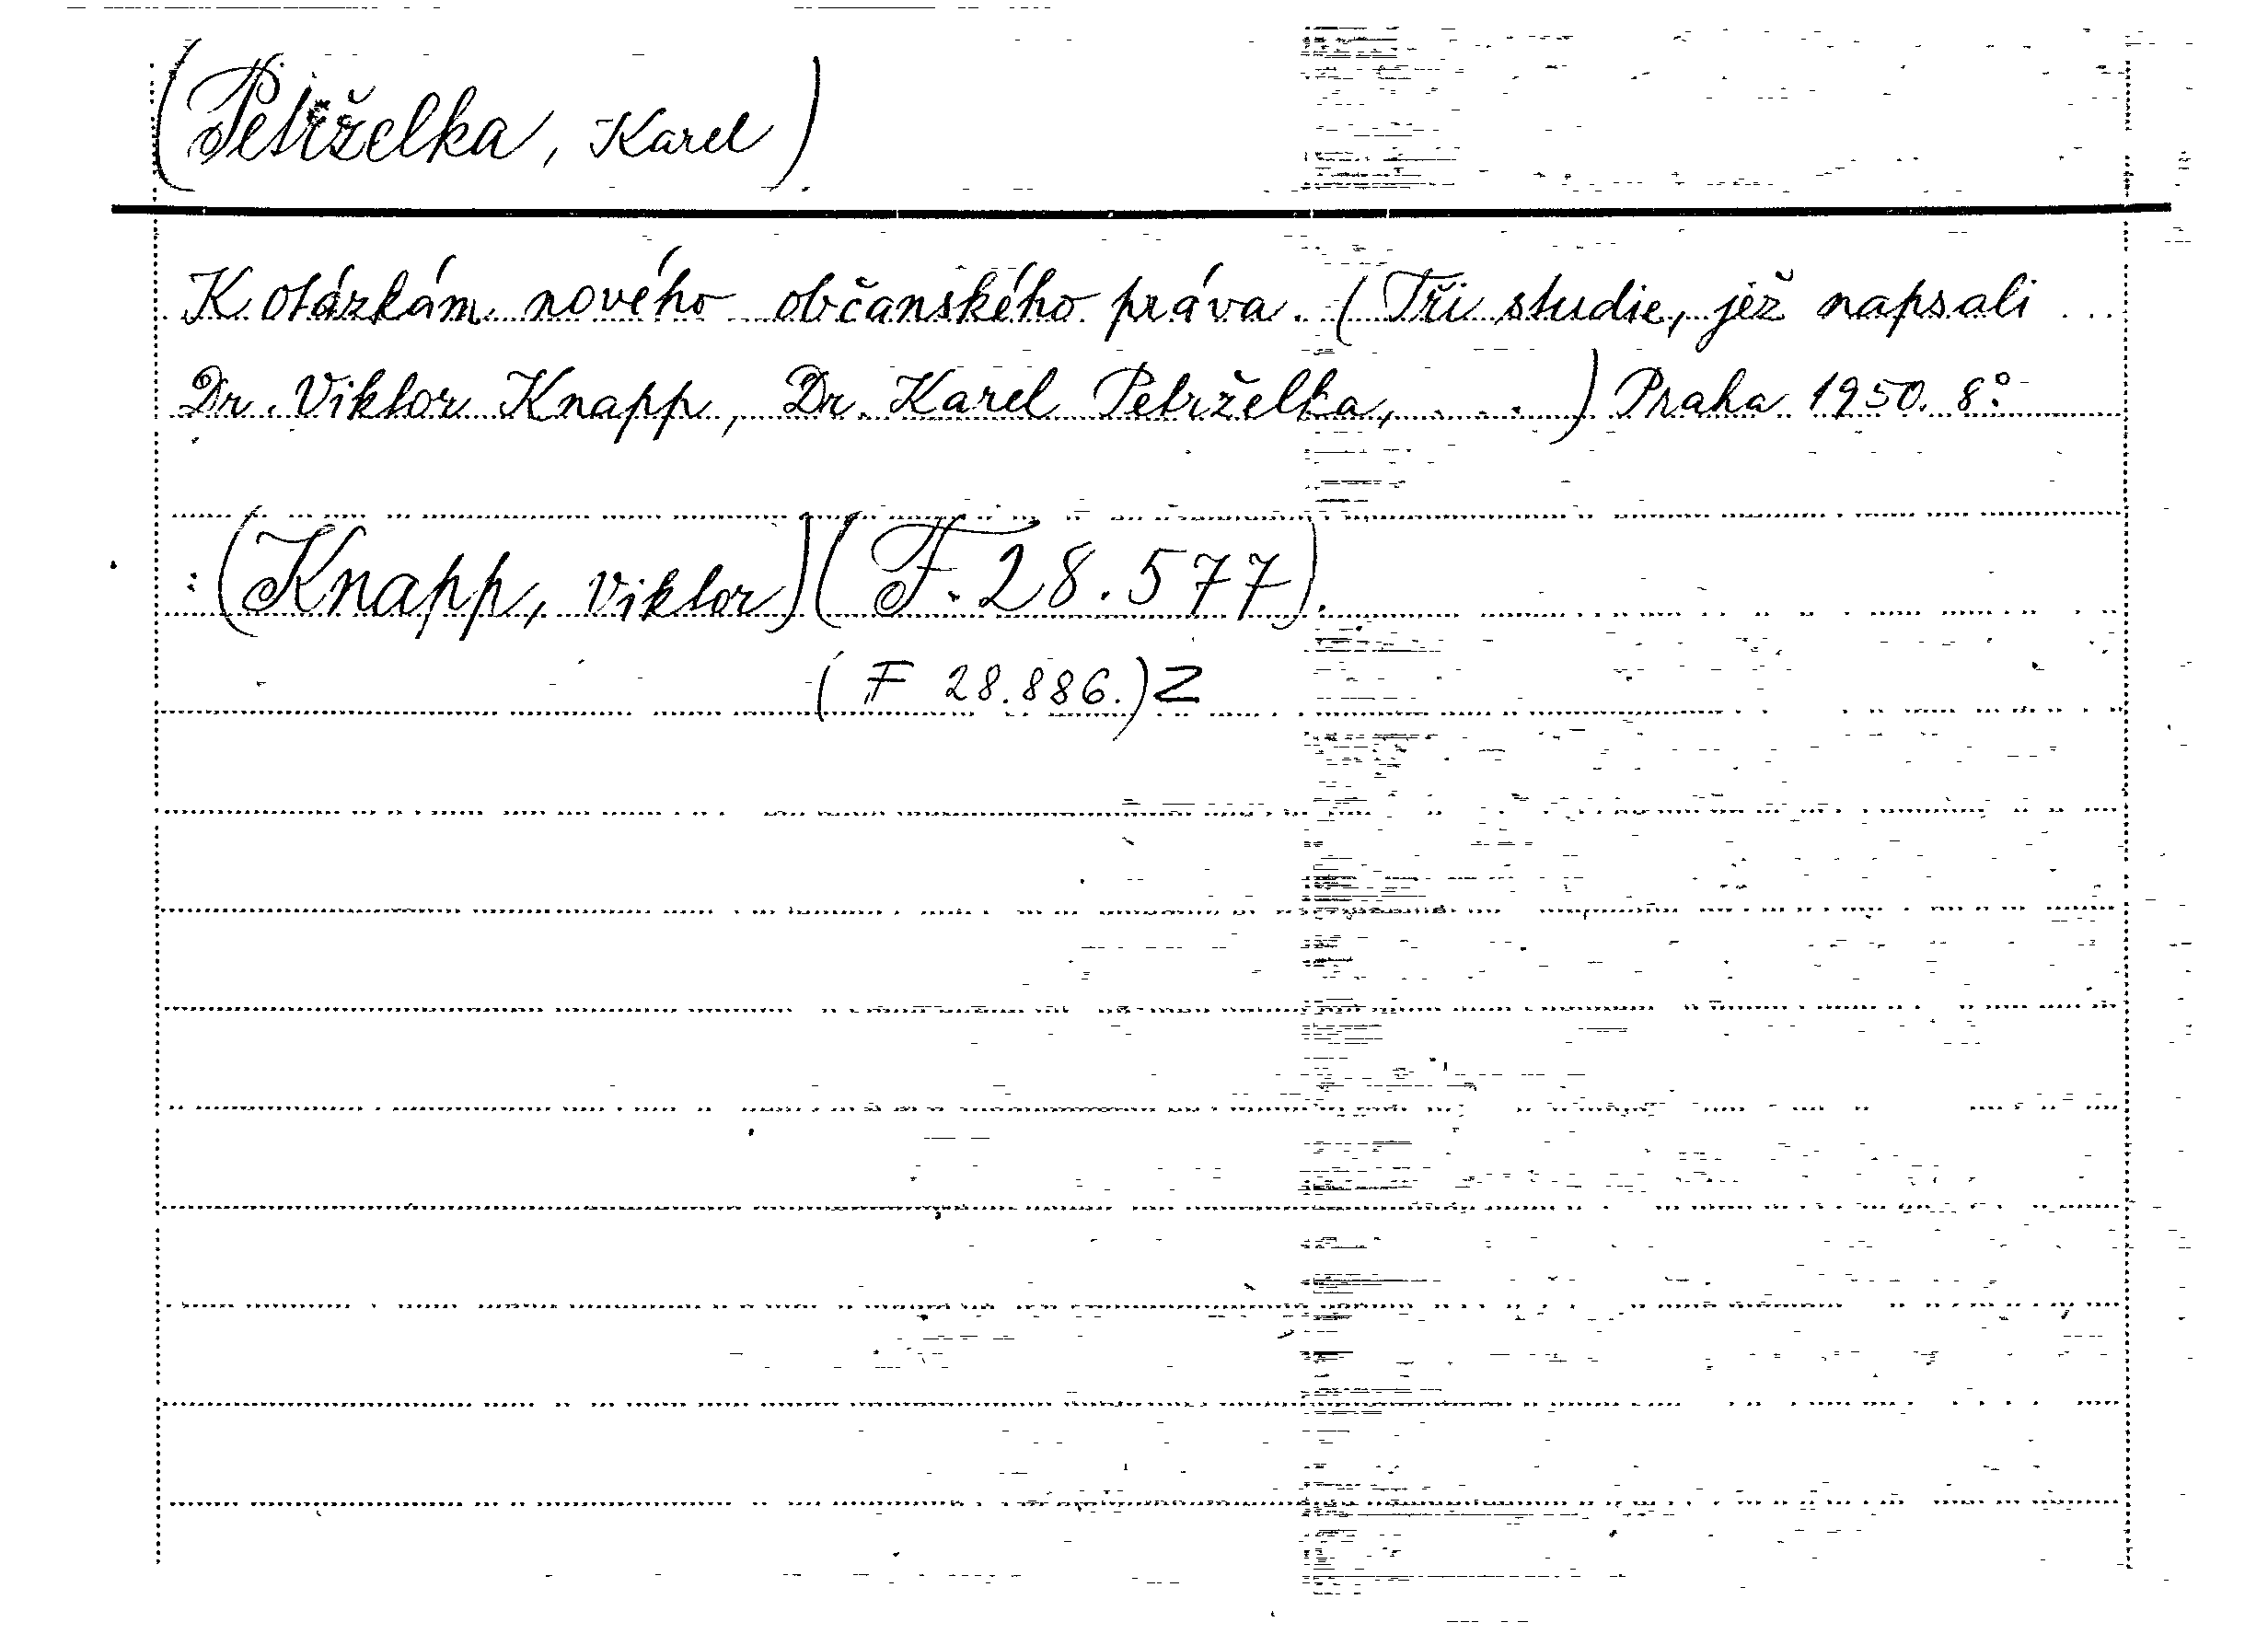 (Petrželka, Karel)
K otázkám nového občanského práva. (Tři studie, jež napsali ...
Dr. Viktor Knapp, Dr. Karel Petrželka, . . . .) Praha 1950. 8°.
:(Knapp, Viktor)(F. 28.577).
(F 28.886.)Z